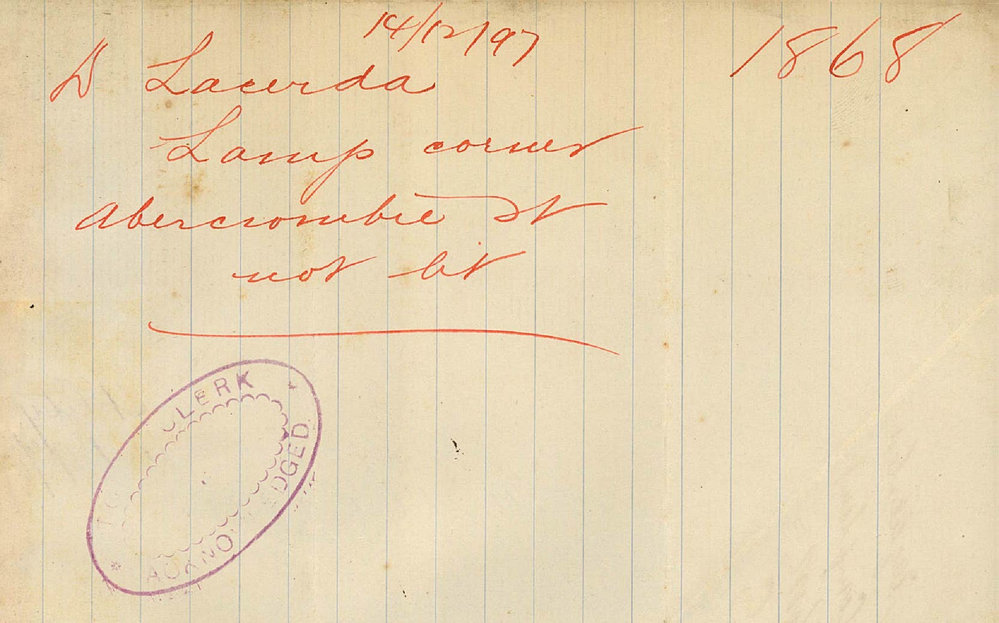 14/12/97
1868
D Lacerda
Lamp corner
Abercrombie St
not lit
CLERK